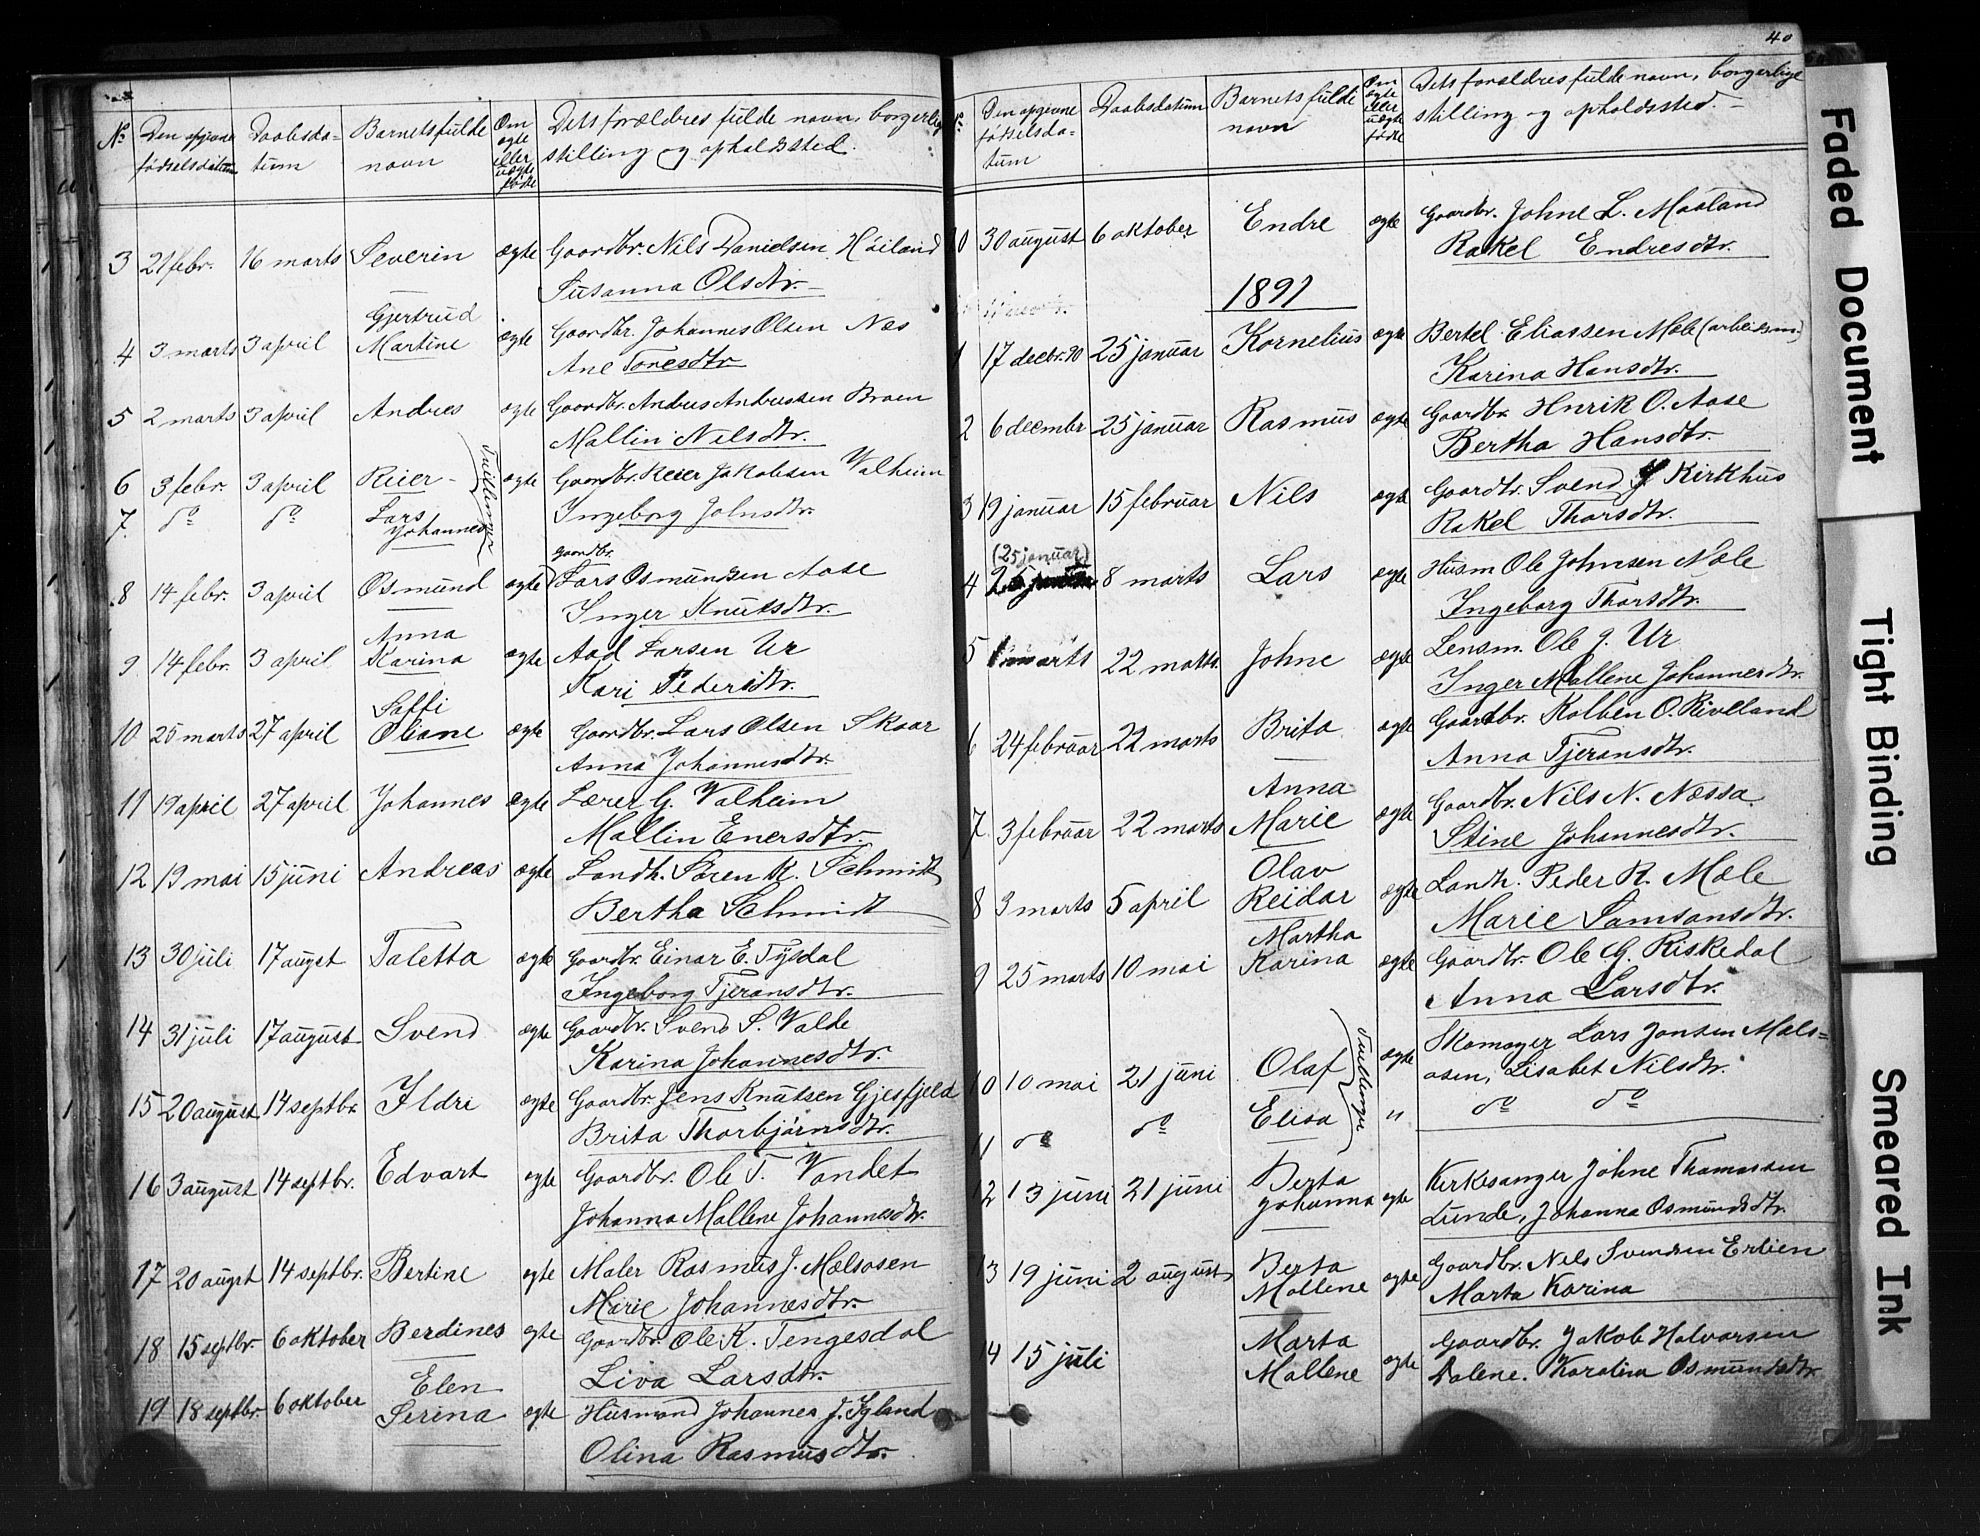 No Den opgivne Daabsda- Barnets fulde Om Dets forældres fulde navn, borgerlig
fødselsdatum tum navn ægte eller uægte fødte stilling og opholdssted.
3 21 febr. 16 marts Severin ægte Gaardbr. Nils Danielsen Høiland
Susanna Olsdtr.
4 3 marts 3 april Gjertrud Martine ægte Gaardbr. Johannes Olsen Næs
Ane Toresdtr
5 2 marts 3 april Andres ægte Gaardbr. Andres Andressen Braen
Mallin Nilsdtr.
6 3 febr. 3 april Reier ægte Gaardbr. Reier Jakobsen Valheim
7. do do Lars Johannes Tvillinger Ingeborg Johnsdtr.
8 14 febr. 3 april Osmund ægte Gaardbr. Lars Osmundsen Aase
Inger Knutsdtr.
9 14 febr. 3 april Anna Karina ægte Aad Larsen Ur
Kari Pedersdtr.
10 25 marts 27 april Saffi Oliane ægte Gaardbr. Lars Olsen Skaar
Anna Johannesdtr.
11 19 april 27 april Johannes ægte Lærer G. Valheim
Mallin Enersdtr.
12 19 mai 15 juni Andreas ægte Landh. Søren R. Schmidt
Bertha Schmidt
13 30 juli 17 augst Taletta ægte Gaardbr. Einar E. Tysdal
Ingeborg Tjeransdtr.
14 31 juli 17 august Svend ægte Gaardbr. Svend S. Valde
Karina Johannesdtr.
15 20 august 14 septbr. Ildri ægte Gaardbr. Jens Knutsen Gjesfjeld
Brita Thorbjørnsdtr.
16 3 august 14 septbr. Edvart ægte Gaardbr. Ole T. Vandet
Johanna Mallene Johannesdtr.
17 20 augst 14 septbr. Bertine ægte Maler Rasmus J. Mælsosen
Marie Johannesdtr.
18 15 septbr. 6 oktober Berdines ægte Gaardbr. Ole K. Tengesdal
Liva Larsdtr.
19 18 septbr. 6 oktober Elen Serina ægte Husmand Johannes J. Tyland
Olina Rasmusdtr.
40
Den opgivne Daabsdatum Barnets fulde Om Dets forældres fulde navn, borgerlige
fødselsda- tum navn ægte eller uægte fødte stilling og opholdssted.
0 30 august 6 oktober Endre ægte Gaardbr. Johne L. Maaland
Rakel Endresdtr.
1891
1 17 decbr. 90 25 januar Kornelius ægte Bertel Eliassen Mæle (arbeidsm.)
Karina Hansdtr.
2 6 decembr 25 januar Rasmus ægte Gaardbr. Hnrik O. Aase
Bertha Hansdtr.
3 19 januar 15 februar Nils ægte Gaardbr. Svend J Kirkhus
Rakel Thorsdtr.
(25 januar)
4 8 marts Lars ægte Husm Ole Johnsen Mæle
Ingeborg Thorsdtr.
5 1 marts 22 marts. Johne ægte Lensm. Ole J. Ur
Inger Mallene Johannesdtr.
6 24 februar 22 marts Brita ægte Gaardbr. Kolben O. Rivelland
Anna Tjeransdtr.
7. 3 februar 22 marts Anna Marie ægte Gaardbr. Nils N. Næssa
Stine Johannesdtr.
8 3 marts 5 april Olav Reidar ægte Landh. Peder R. Mæle
Marie Samsonsdtr.
9 25 marts 10 mai Martha Karina ægte Gaardbr. Ole G. Riskedal
Anna Larsdtr.
10 10 mai 21 juni Olaf Tvillinger ægte Skomager Lars Jonsen Mæls-
osen, Lisabet Nilsdtr.
11 do do Elisa " do do
12 13 juni 21 juni Berta Johanna ægte Kirkesanger Johne Thomassen
Lunde, Johanna Osmundsdtr.
13 19 juni 2 august Berta Mallene ægte Gaardbr. Nils Svendsen Erlien
Marta Karina
14 15 juli Marta Mallene ægte Gaardbr. Jakob Halvorsen
Dalene. Karolina Osmundsdtr.
Faded Document
Tight Binding
Smeared Ink